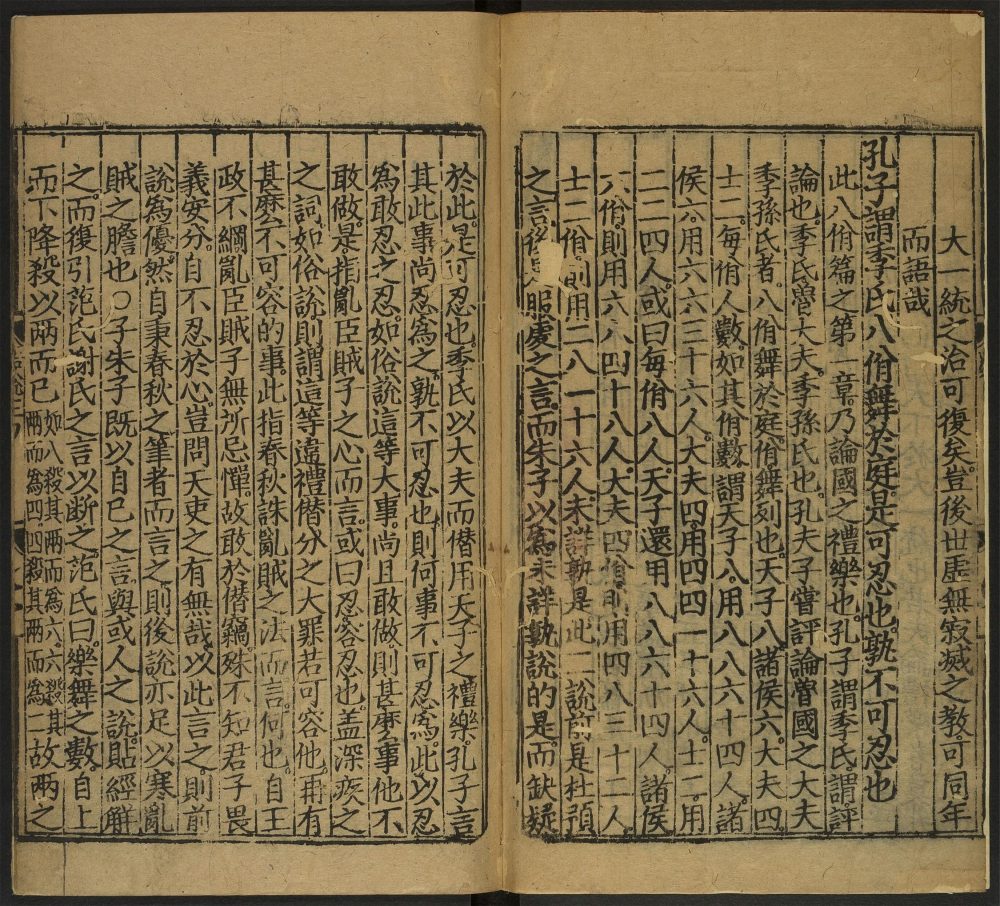 大一統之治可復矣豈後世虛無寂滅之教可同年
而語哉
孔子謂季氏八佾舞於庭是可忍也孰不可忍也
此八佾篇之第一章乃論國之禮樂也孔子謂季氏謂評
論也季氏魯大夫季孫氏也孔夫子嘗評論魯國之大夫
季孫氏者八佾舞於庭佾舞列也天子八諸侯六大夫四
士二每佾人數如其佾數謂天子八用八八六十四人諸
侯六用六六三十六人大夫四用四四一十六人士二用
二二四人或曰每佾八人天子還用八八六十四人諸侯
六佾則用六八四十八人大夫四佾則用四八三十二人
士二佾則用二八一十六人未詳孰是此二說前是杜預
之言後是服虔之言而朱子以爲未詳孰說的是而缺疑
於此是可忍也季氏以大夫而僭用天子之禮樂孔子言
其此事尚忍爲之孰不可忍也則何事不可忍爲此以忍
爲敢忍之忍如俗說這等大事尚且敢做則甚麽事他不
敢做是指亂臣賊子之心而言或曰忍容忍也盖深疾之
之詞如俗說則謂這等違禮僭分之大罪若可容他再有
甚麽不可容的事此指春秋誅亂賊之法而言何也自王
政不綱亂臣賊子無所忌憚故敢於僭竊殊不知君子畏
義安分自不忍於心豈問天吏之有無哉以此言之則前
說爲優然自秉春秋之筆者而言之則後說亦足以寒亂
賊之膽也○子朱子旣以自己之言與或人之說貼經解
之而復引范氏謝氏之言以断之范氏曰樂舞之數自上
而下降殺以兩而已如八殺其兩而爲六六殺其兩而爲四四殺其兩而爲二故兩之